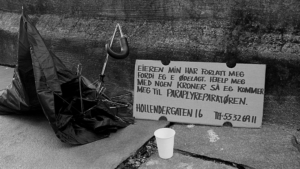 EIEREN MIN HAR FORLATT MEG
FORDI EG E ØDELAGT. HJELP MEG
MED NOEN KRONER SÅ EG KOMMER
MEG TIL PARAPLYREPARATØREN.
HOLLENDERGATEN 16 TLF-55 32 69 11